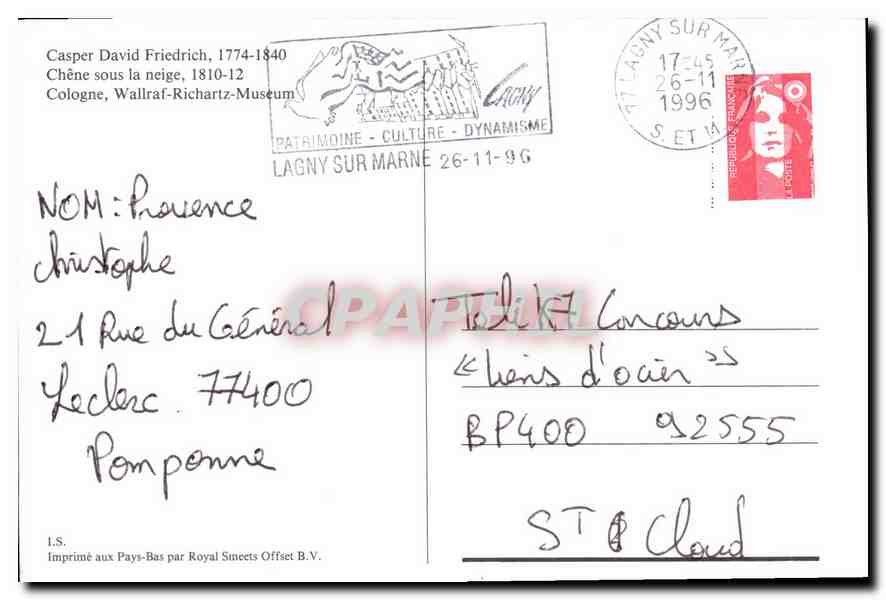 Casper David Friedrich, 1774-1840
Chêne sous la neige, 1810-12
Cologne, Wallraf-Richartz-Museum
LAGNY
PATRIMOINE - CULTURE - DYNAMISME
LAGNY SUR MARNE 26-11-96
77 LAGNY SUR MARNE
17-45
26-11
1996
S. ET M.
REPUBLIQUE FRANÇAISE
LA POSTE
NOM : Provence
christophe
21 Rue du Général
Leclerc. 77400
Pomponne
CPAPHIL
Télé K7 Concours
"liens d'acier"
BP400 92555
ST Cloud
I.S.
Imprimé aux Pays-Bas par Royal Smeets Offset B.V.